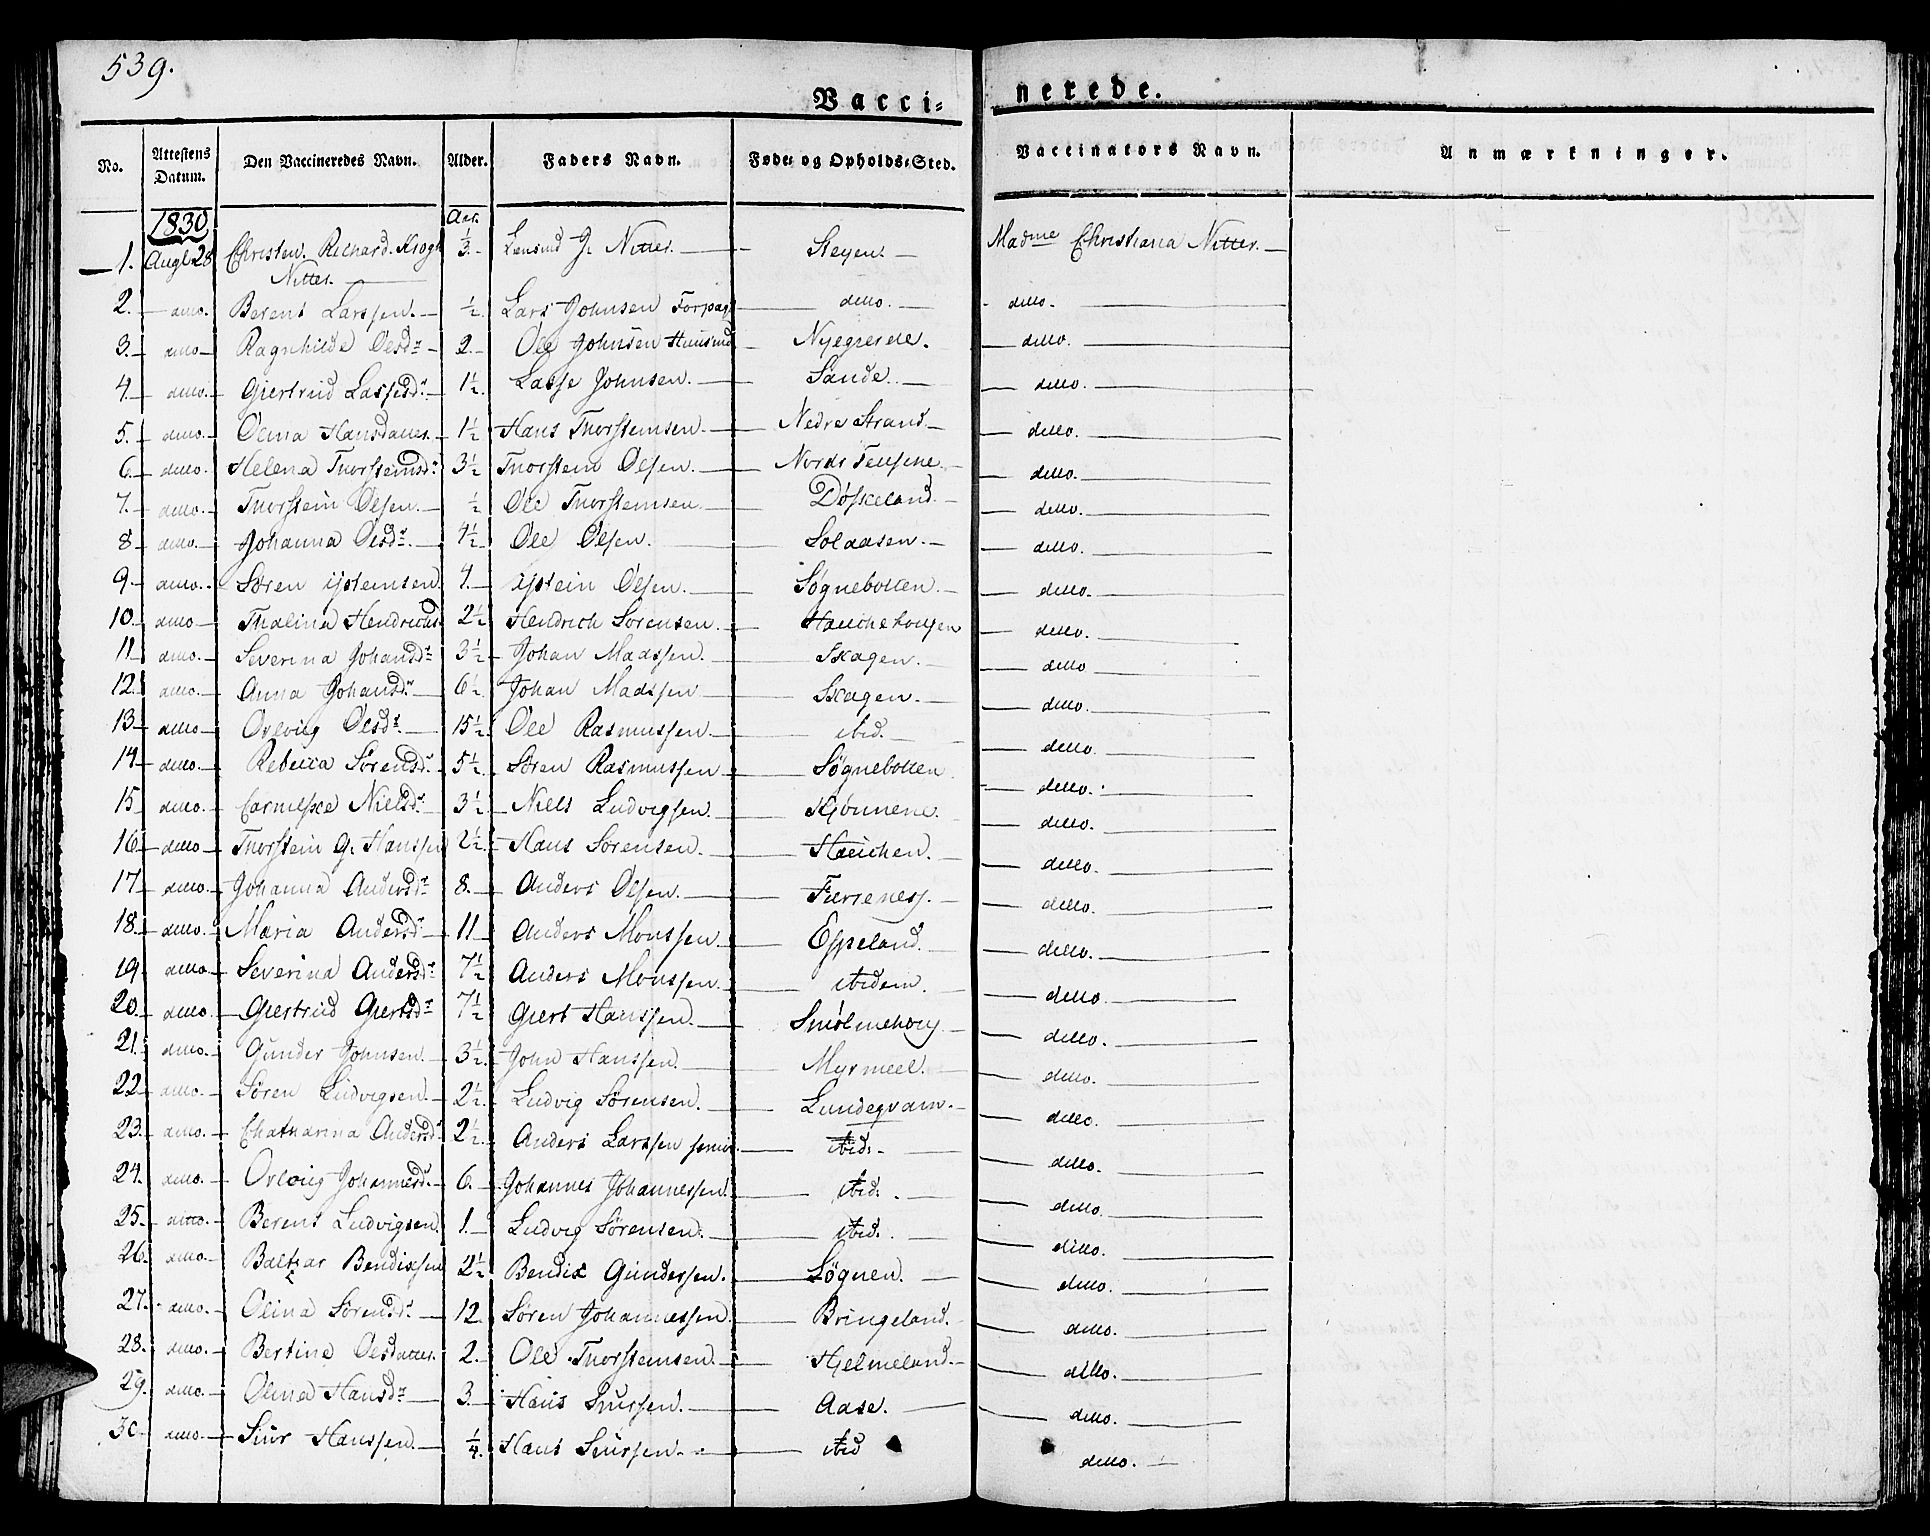 539.
Vacci= nerede.
No. Attestens Datum. Den Vaccineredes Navn. Alder. Faders Navn. Føde= og Opholds=Sted. Vaccinators Navn. Anmærkninger.
1830 Aar.
1. Augt 28 Christen Richard Krogh ⅓ G. Nitter. Steyen. Madme Christiana Nitter.
Nitter.
2. ditto. Berent Larssen. ½ Lars Johnsen ditto. ditto.
3. ditto Ragnhilde Olsdr 2. Ole Johnsen Huusmd Nyegierde. ditto.
4. ditto. Giertrud Lassesdr. 1½ Lasse Johnsen. Sande. ditto.
5. ditto. Olina Hansdatter. 1½ Hans Thorsteinsen. Nedre Strand ditto.
6. ditto. Helena Thorsteinsdr 3½ Thorstein Olsen. Nordr ditto.
7. ditto. Thorstein Olsen. ½ Ole Thorsteinsen Døskeland. ditto.
8 ditto. Johanna Olsdr. 4½ Ole Olsen. Solaasen. ditto.
9 ditto. Søren Ysteinsen 4. Ystein Olsen. Søgnebotten. ditto.
10. ditto Thalina Hendrichsd 2½ Hendrich Sørensen. ditto.
11 ditto. Severina Johansdr 3½ Johan Madssen. Skagen. ditto
12. ditto. Anna Johansdr. 6½ Johan Madssen Skagen. ditto.
13 ditto. Orloug Olsdr. 15½ Ole Rasmussen. ibid. ditto.
14 ditto. Rebecca Sørensdr. 5½ Søren Rasmussen Søgnebotten ditto.
15 ditto. Carnelske Nielsdr. 3½ Niels Ludvigsen. ditto.
16. ditto Thorstein G. Hanssen 2½ Hans Sørensen. Hauchen. ditto.
17 ditto. Johanna Andersdr 8. Anders Olsen. Furreness. ditto.
18. ditto. Maria Andersdr 11 Anders Monssen Espeland. ditto.
19. ditto. Severina Andersdr 7½ Anders Monssen. ibidem. ditto.
20. ditto. Giertrud Giertsdr 7½ Giert Hanssen. ditto.
21. ditto. Gunder Johnsen. 3½ John Hanssen. Myrmeel. ditto.
22 ditto. Søren Ludvigsen. 2½ Ludvig Sørensen. Lundeqvam. ditto.
23. ditto. Chatharina Andersdr 2½ Anders Larssen senior ibid. ditto.
24. ditto. Orloug Johannesdr. 6. Johannes Johannessen. ibid. ditto.
25. ditto. Berent Ludvigsen 1. Ludvig Sørensen. ibid. ditto.
26. ditto. Baltzar Bendixsen 2½ Bendix Gundersen. Søgnen. ditto.
27. ditto. Olina Sørensdr. 12 Søren Johannessen. Bringeland. ditto.
28. ditto. Bertine Olsdatter. 2. Ole Thorsteinsen. Hjelmeland. ditto.
29. ditto. Olina Hansdr 3. Hans Siursen. Aase. ditto.
30. ditto. Siur Hanssen. ¼ Hans Siursen. ibid ditto.